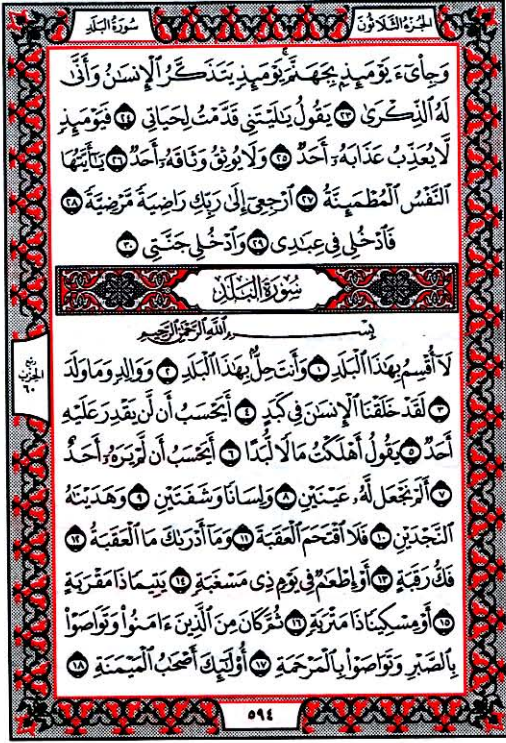 سُورَةُ البَلَدِ
الجُزْءُ الثَّلَاثُونَ
وَجِاْىٓءَ يَوْمَئِذٍۭ بِجَهَنَّمَ يَوْمَئِذٍ يَتَذَكَّرُ ٱلْإِنسَٰنُ وَأَنَّىٰ
لَهُ ٱلذِّكْرَىٰ ٢٣ يَقُولُ يَٰلَيْتَنِى قَدَّمْتُ لِحَيَاتِى ٢٤ فَيَوْمَئِذٍ
لَّا يُعَذِّبُ عَذَابَهُۥٓ أَحَدٌ ٢٥ وَلَا يُوثِقُ وَثَاقَهُۥٓ أَحَدٌ ٢٦ يَٰٓأَيَّتُهَا
ٱلنَّفْسُ ٱلْمُطْمَئِنَّةُ ٢٧ ٱرْجِعِىٓ إِلَىٰ رَبِّكِ رَاضِيَةً مَّرْضِيَّةً ٢٨
فَٱدْخُلِى فِى عِبَٰدِى ٢٩ وَٱدْخُلِى جَنَّتِى ٣٠
سُورَةُ البَلَدِ
بِسْمِ ٱللَّهِ ٱلرَّحْمَٰنِ ٱلرَّحِيمِ
لَآ أُقْسِمُ بِهَٰذَا ٱلْبَلَدِ ١ وَأَنتَ حِلٌّۢ بِهَٰذَا ٱلْبَلَدِ ٢ وَوَالِدٍ وَمَا وَلَدَ
٣ لَقَدْ خَلَقْنَا ٱلْإِنسَٰنَ فِى كَبَدٍ ٤ أَيَحْسَبُ أَن لَّن يَقْدِرَ عَلَيْهِ
أَحَدٌ ٥ يَقُولُ أَهْلَكْتُ مَالًا لُّبَدًا ٦ أَيَحْسَبُ أَن لَّمْ يَرَهُۥٓ أَحَدٌ
٧ أَلَمْ نَجْعَل لَّهُۥ عَيْنَيْنِ ٨ وَلِسَانًا وَشَفَتَيْنِ ٩ وَهَدَيْنَٰهُ
ٱلنَّجْدَيْنِ ١٠ فَلَا ٱقْتَحَمَ ٱلْعَقَبَةَ ١١ وَمَآ أَدْرَىٰكَ مَا ٱلْعَقَبَةُ ١٢
فَكُّ رَقَبَةٍ ١٣ أَوْ إِطْعَٰمٌ فِى يَوْمٍ ذِى مَسْغَبَةٍ ١٤ يَتِيمًا ذَا مَقْرَبَةٍ
١٥ أَوْ مِسْكِينًا ذَا مَتْرَبَةٍ ١٦ ثُمَّ كَانَ مِنَ ٱلَّذِينَ ءَامَنُوا۟ وَتَوَاصَوْا۟
بِٱلصَّبْرِ وَتَوَاصَوْا۟ بِٱلْمَرْحَمَةِ ١٧ أُو۟لَٰٓئِكَ أَصْحَٰبُ ٱلْمَيْمَنَةِ ١٨
ربع
الحزب
٦٠
٥٩٤